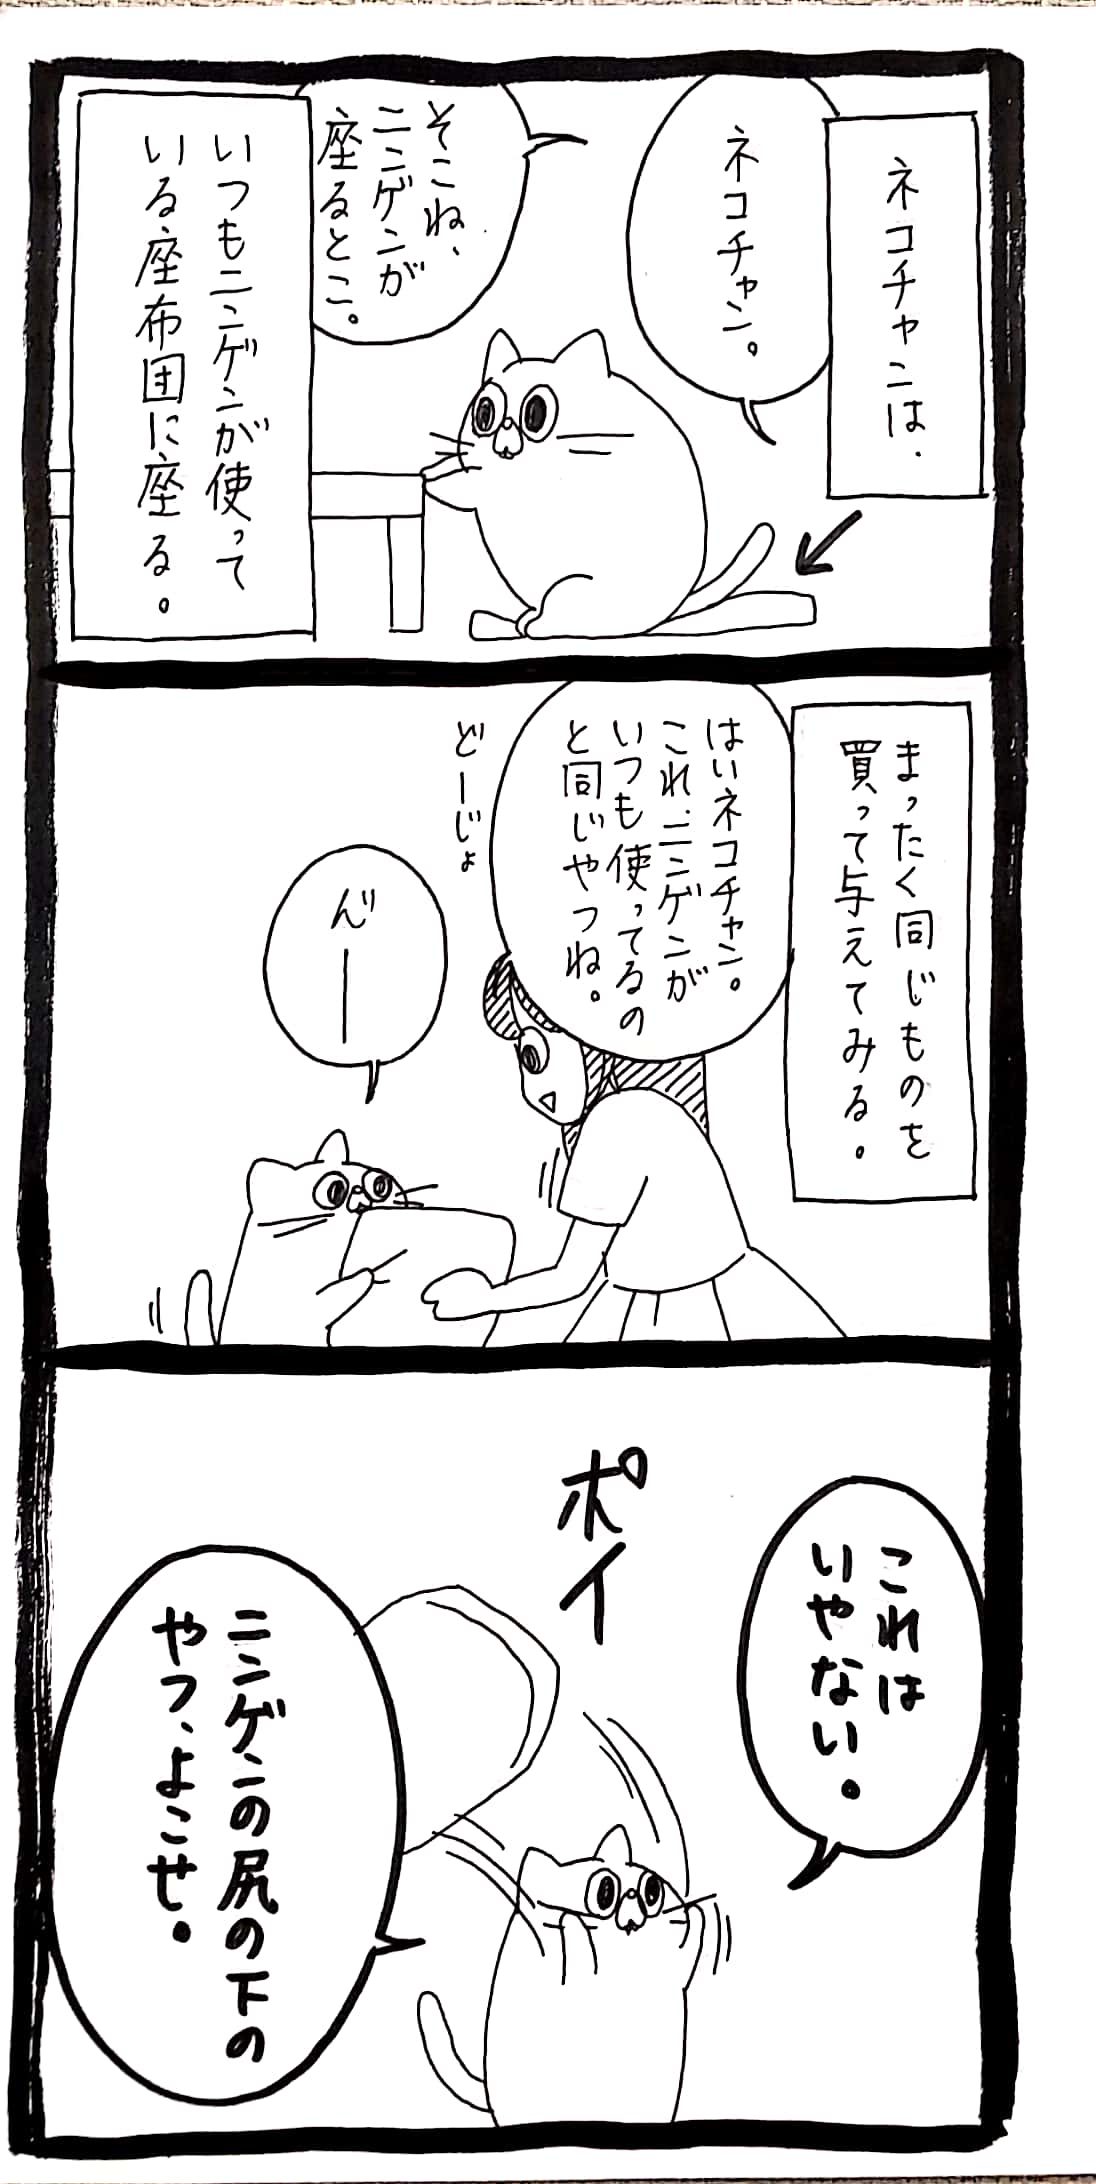 ネコチャンは、
ネコチャン。
そこね、
ニンゲンが
座るとこ。
いつもニンゲンが使って
いる座布団に座る。
まったく同じものを
買って与えてみる。
はいネコチャン。
これ、ニンゲンが
いつも使ってるの
と同じやつね。
どーじょ
んー
ポイ
これは
いやない。
ニンゲンの尻の下の
やつ、よこせ。